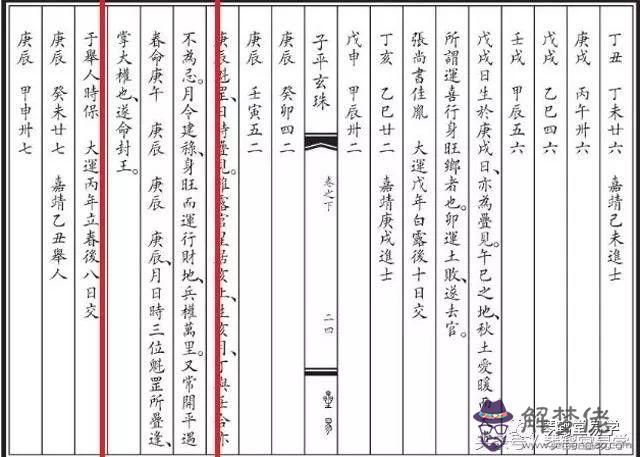 丁丑 丁未廿六 嘉靖己未進士
庚戌 丙午卅六
戊戌 乙巳四六
壬戌 甲辰五六
戊戌日生於庚戌日、亦為疊見。午巳之地、秋土愛暖而
所謂運喜行身旺鄉者也。卯運土敗、遂去官。
張尚書佳胤 大運戊年白露後十日交
丁亥 乙巳廿二 嘉靖庚戌進士
戊申 甲辰卅二
子平玄珠 卷之下 二四 星易
庚辰 癸卯四二
庚辰 壬寅五二
庚辰魁罡、日時疊見。雖露官星居亥上、生亥月、丁與壬合亦
不為忌。月令建祿、身旺而運行財地、兵權萬里。又常開平遇
春命庚午 庚辰 庚辰 庚辰、月日時三位魁罡所疊逢、
掌大權也、遂命封王。
于舉人時保 大運丙年立春後八日交
庚辰 癸未廿七 嘉靖乙丑舉人
庚辰 甲申卅七
解梦佬
www.jiemenglao.com